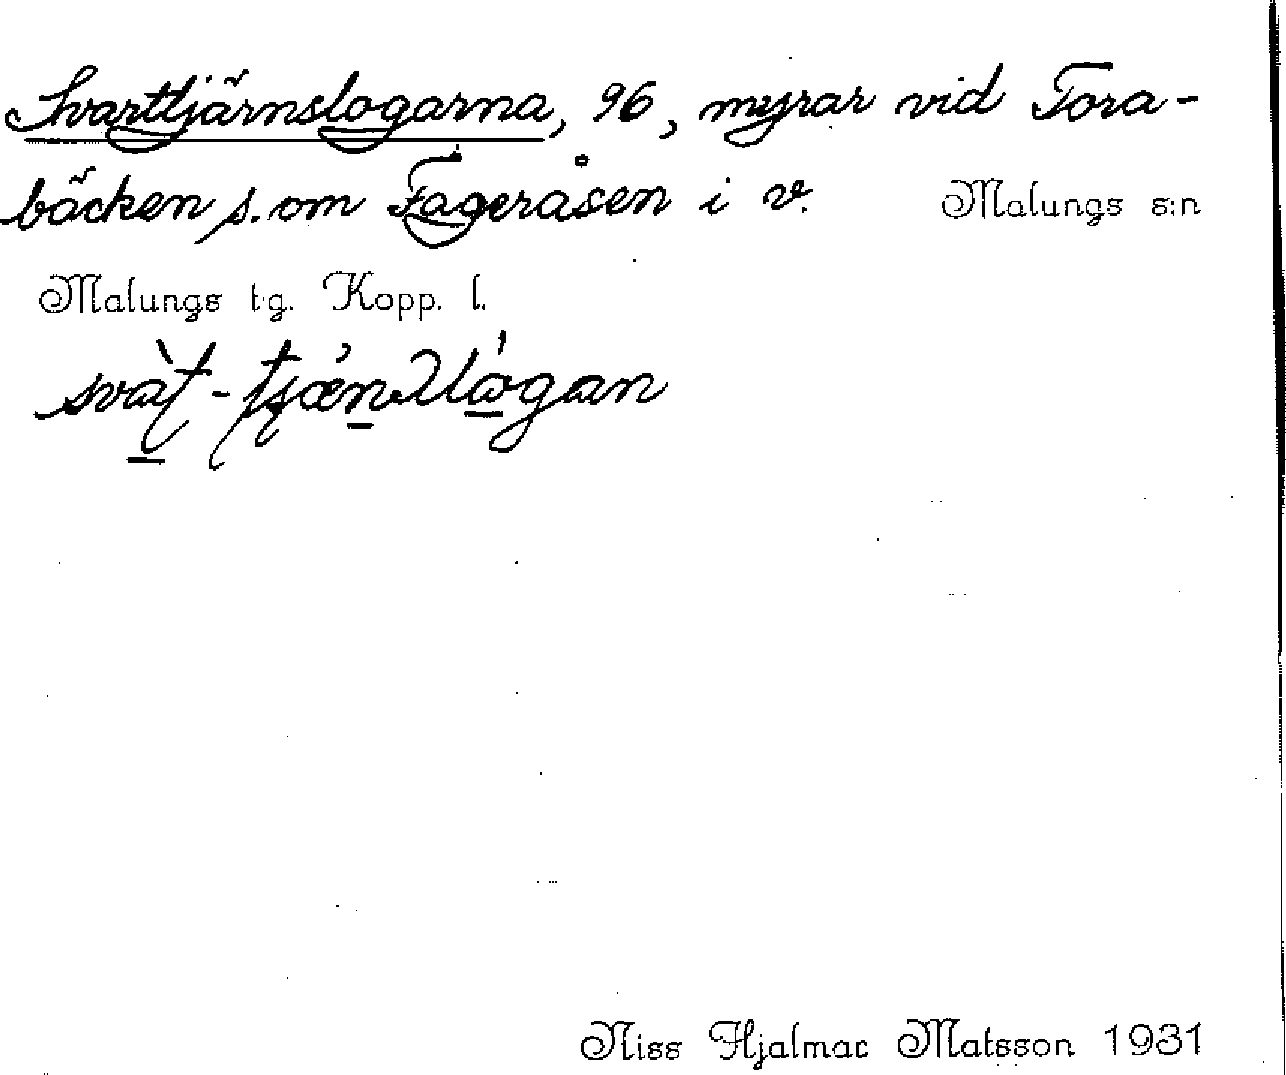 Svarttjärnslogarna, 96, myrar vid Tora-
bäcken s. om Fageråsen i v. Malungs s:n
Malungs tg. Kopp. l.
Niss Hjalmar Matsson 1931